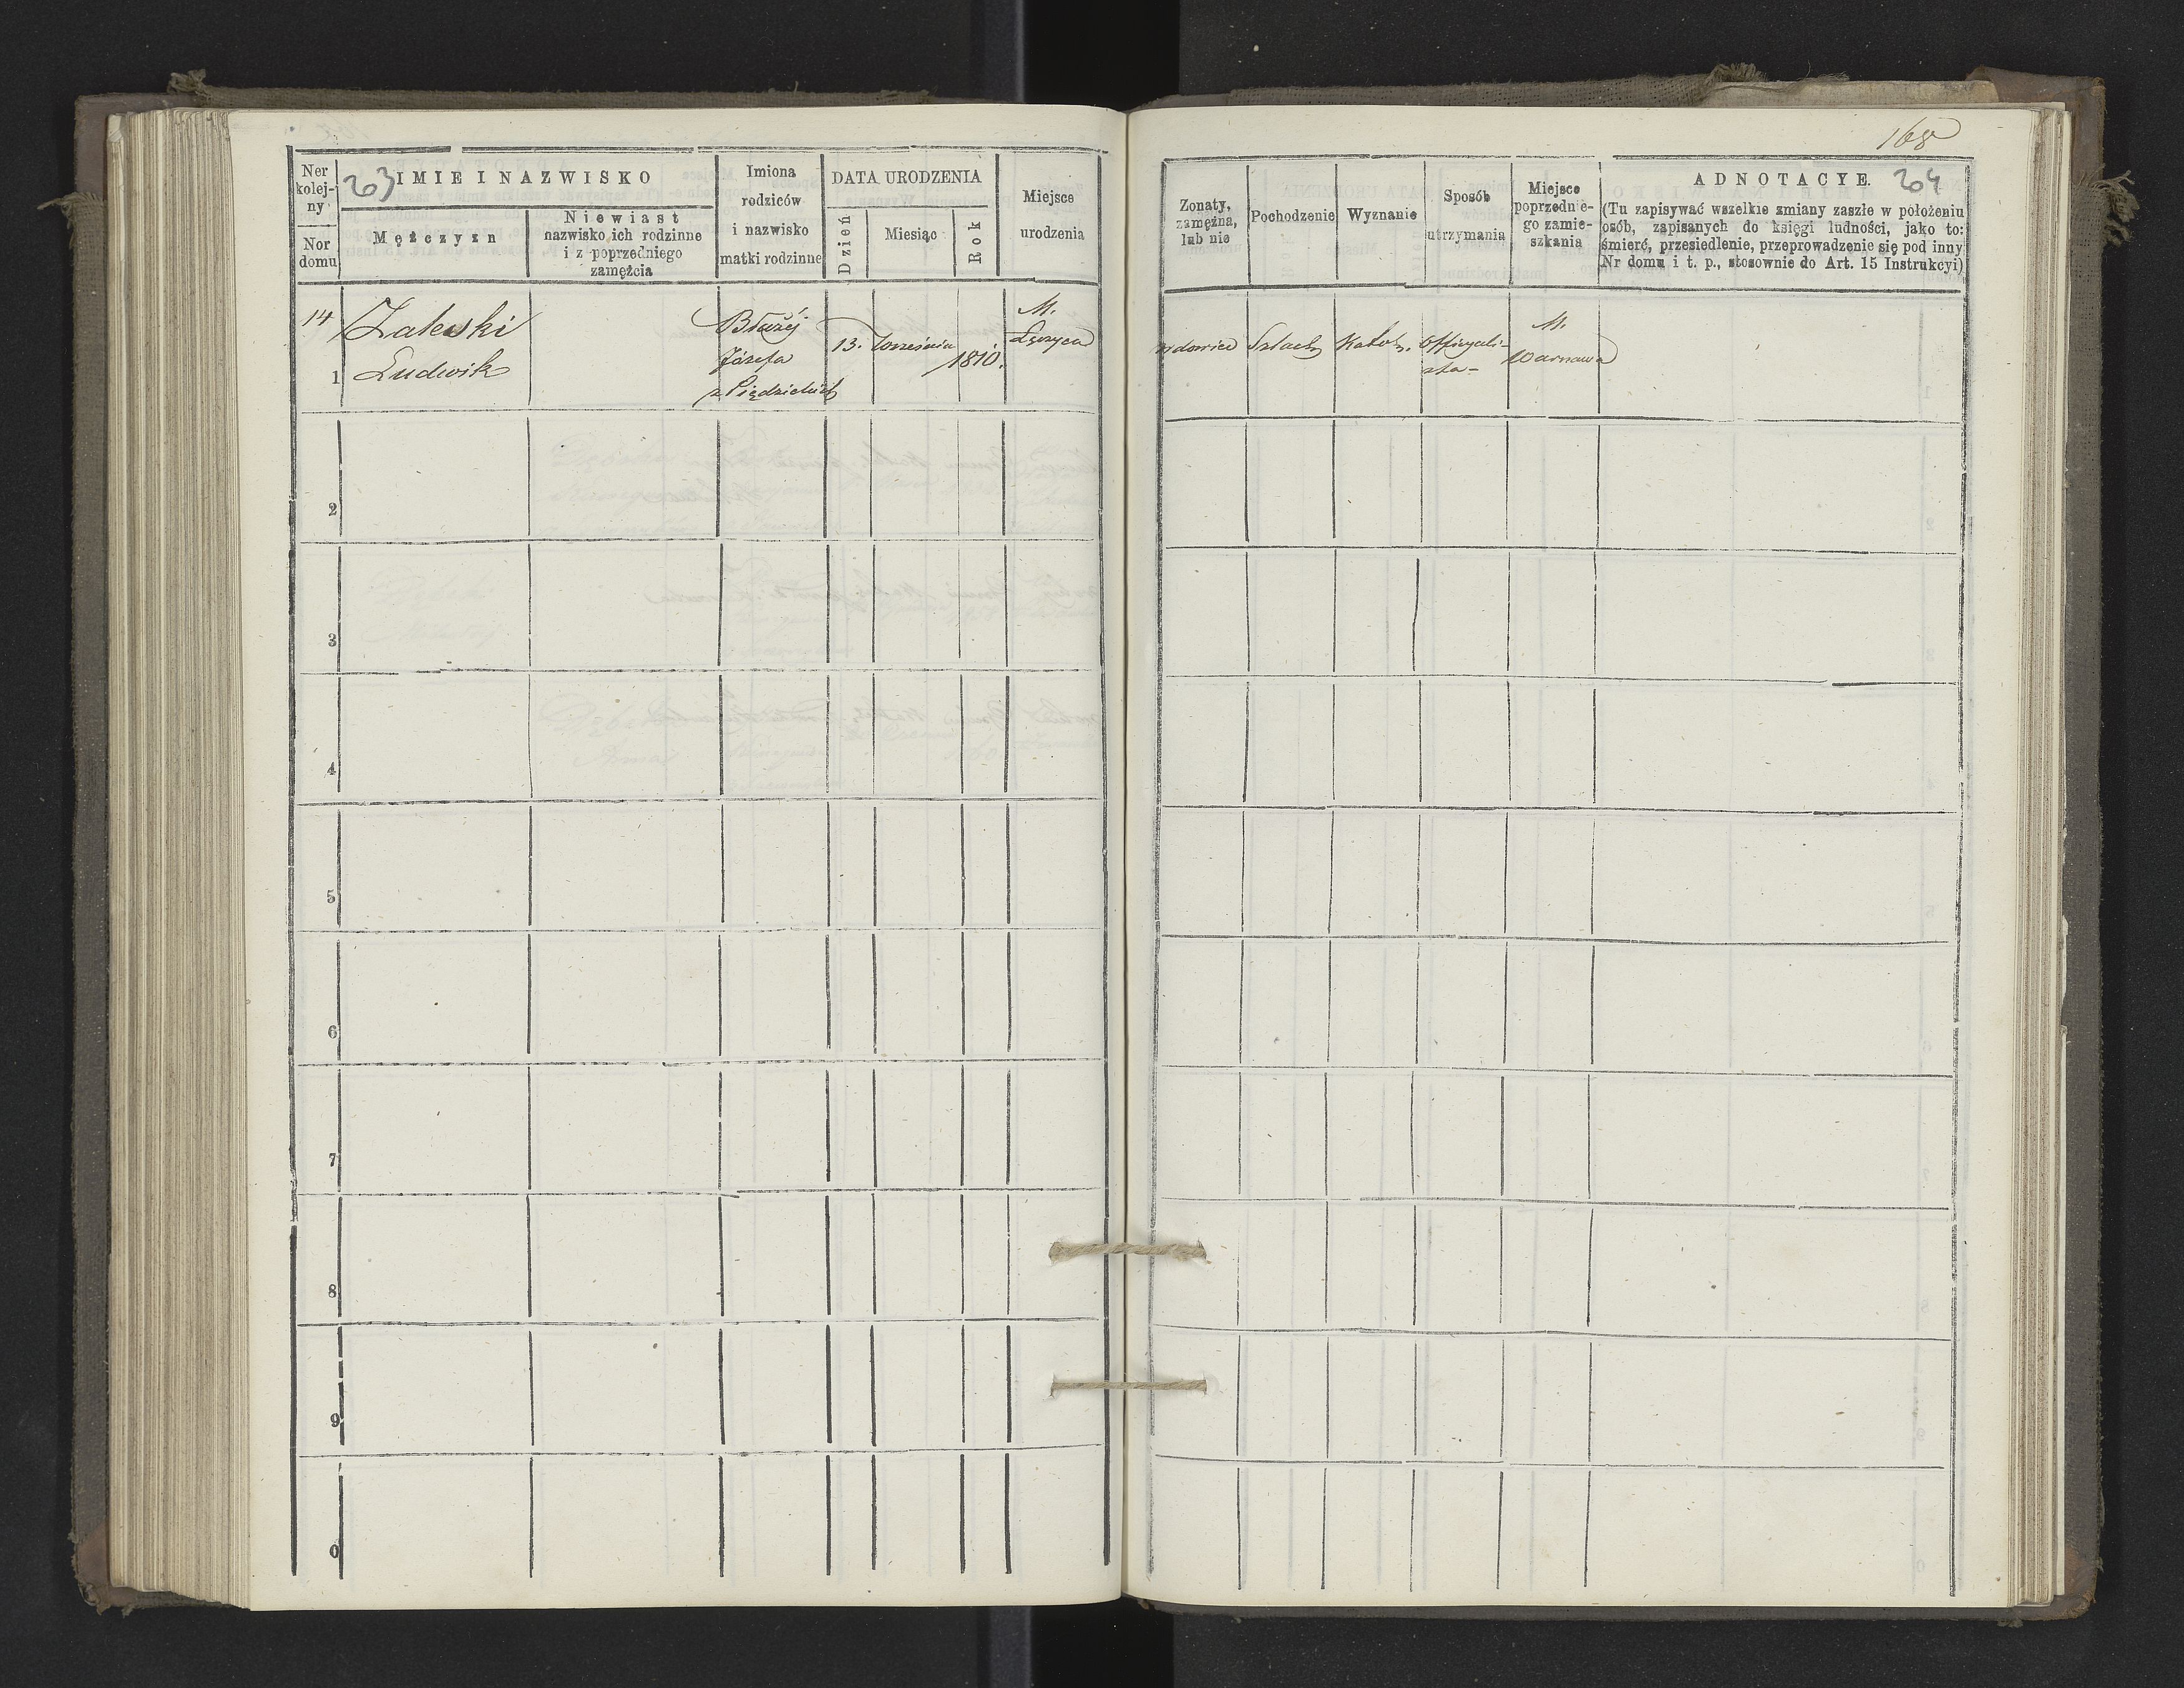 168
Ner
kolej-
ny
Nor
domu
203
IMIE I NAZWISKO
Mężczyzn
Niewiast
nazwisko ich rodzinne
i z poprzedniego
zamężcia
Imiona
rodziców
i nazwisko
matki rodzinne
DATA URODZENIA
Dzień
Miesiąc
Rok
Miejsce
urodzenia
Zonaty,
zamężna,
lub nie
Pochodzenie
Wyznanie
Sposób
utrzymania
Miejsce
poprzednie-
go zamie-
szkania
ADNOTACYE.
204
(Tu zapisywać wszelkie zmiany zaszłe w położeniu
osób, zapisanych do księgi ludności, jako to:
śmierć, przesiedlenie, przeprowadzenie się pod inny
Nr domu i t. p., stosownie do Art. 15 Instrukcyi)
14
1
Zaleski
Ludwik
Błażej
Józefa
13. Września
1810.
M.
Łęczyca
wdowiec
Szlach
Katol.
Offycyali-
sta-
M.
Warszawa
2
3
4
5
6
7
8
9
0